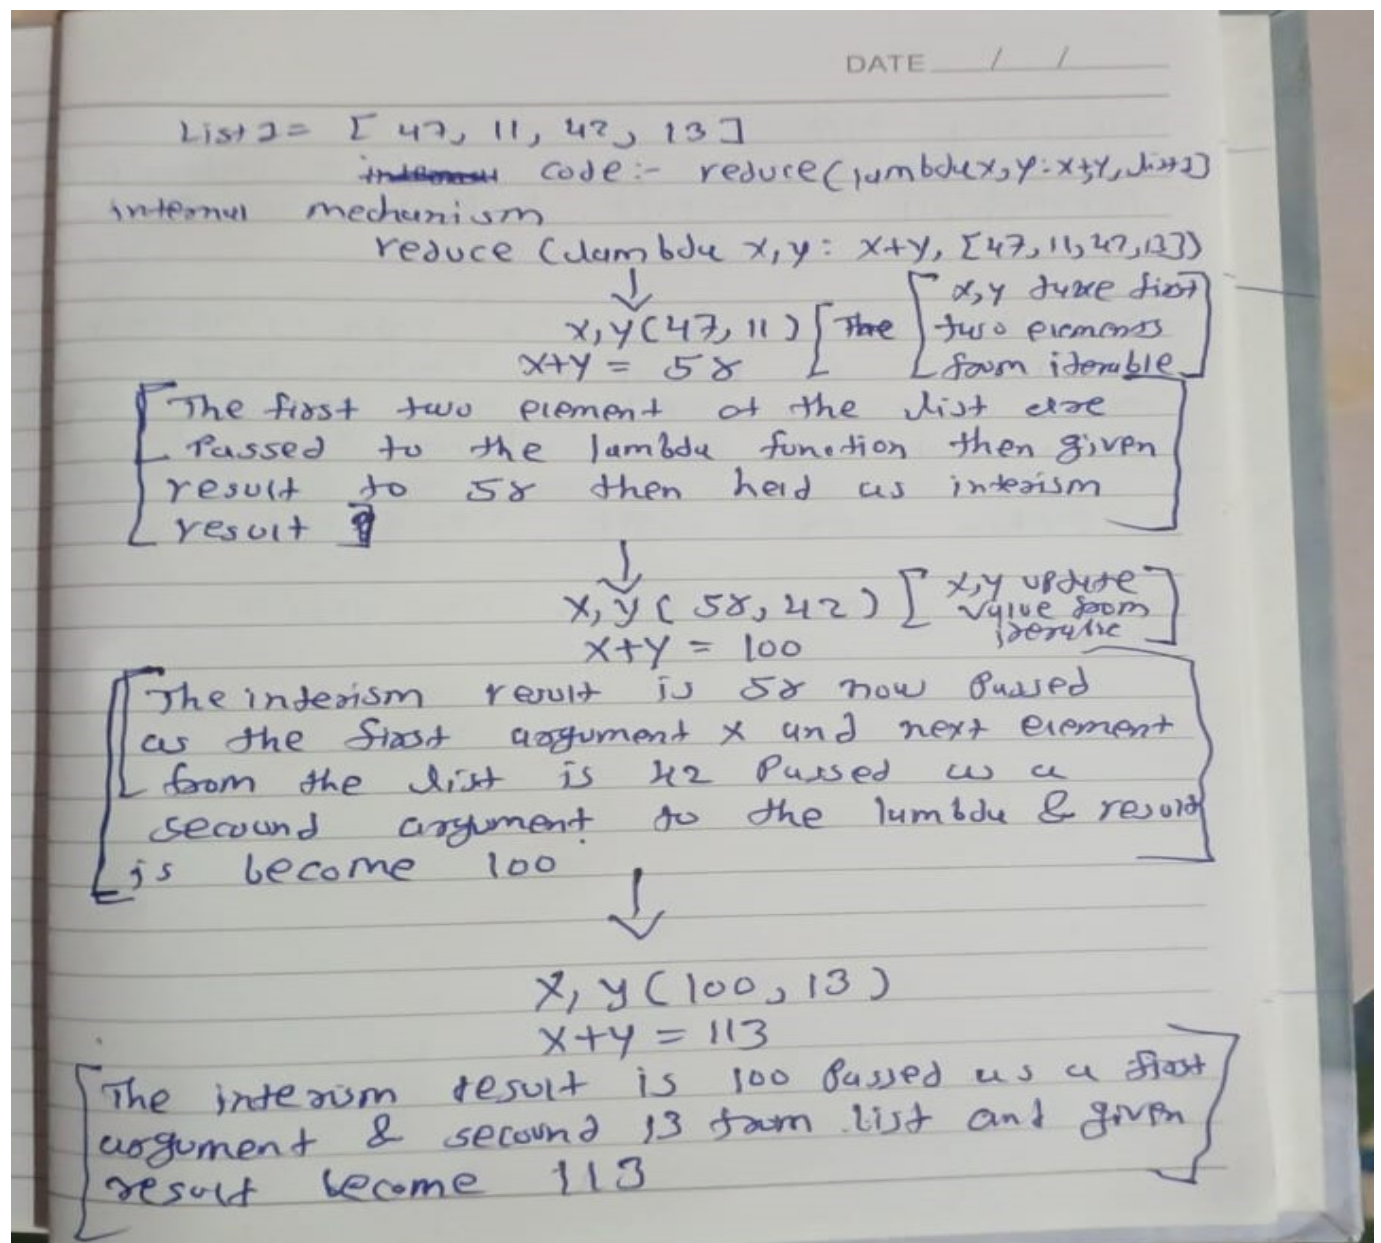 DATE / /
List1= [ 47, 11, 42, 13 ]
code:- reduce(lambda x,y:x+y, list1)
internal mechanism
reduce (lambda x,y: x+y, [47,11,42,13])
x,y take first
x,y(47,11) [ The two elements
x+y = 58 from iterable
The first two element of the list are
Passed to the lambda function then given
result to 58 then held as interism
result
x,y update
x,y( 58,42) value from
iterable
x+y = 100
The interism result is 58 now Passed
as the first argument x and next element
from the list is 42 Passed as a
secound argument to the lambda & result
is become 100
x,y(100,13)
x+y = 113
The interism result is 100 Passed as a first
argument & secound 13 from list and given
result become 113